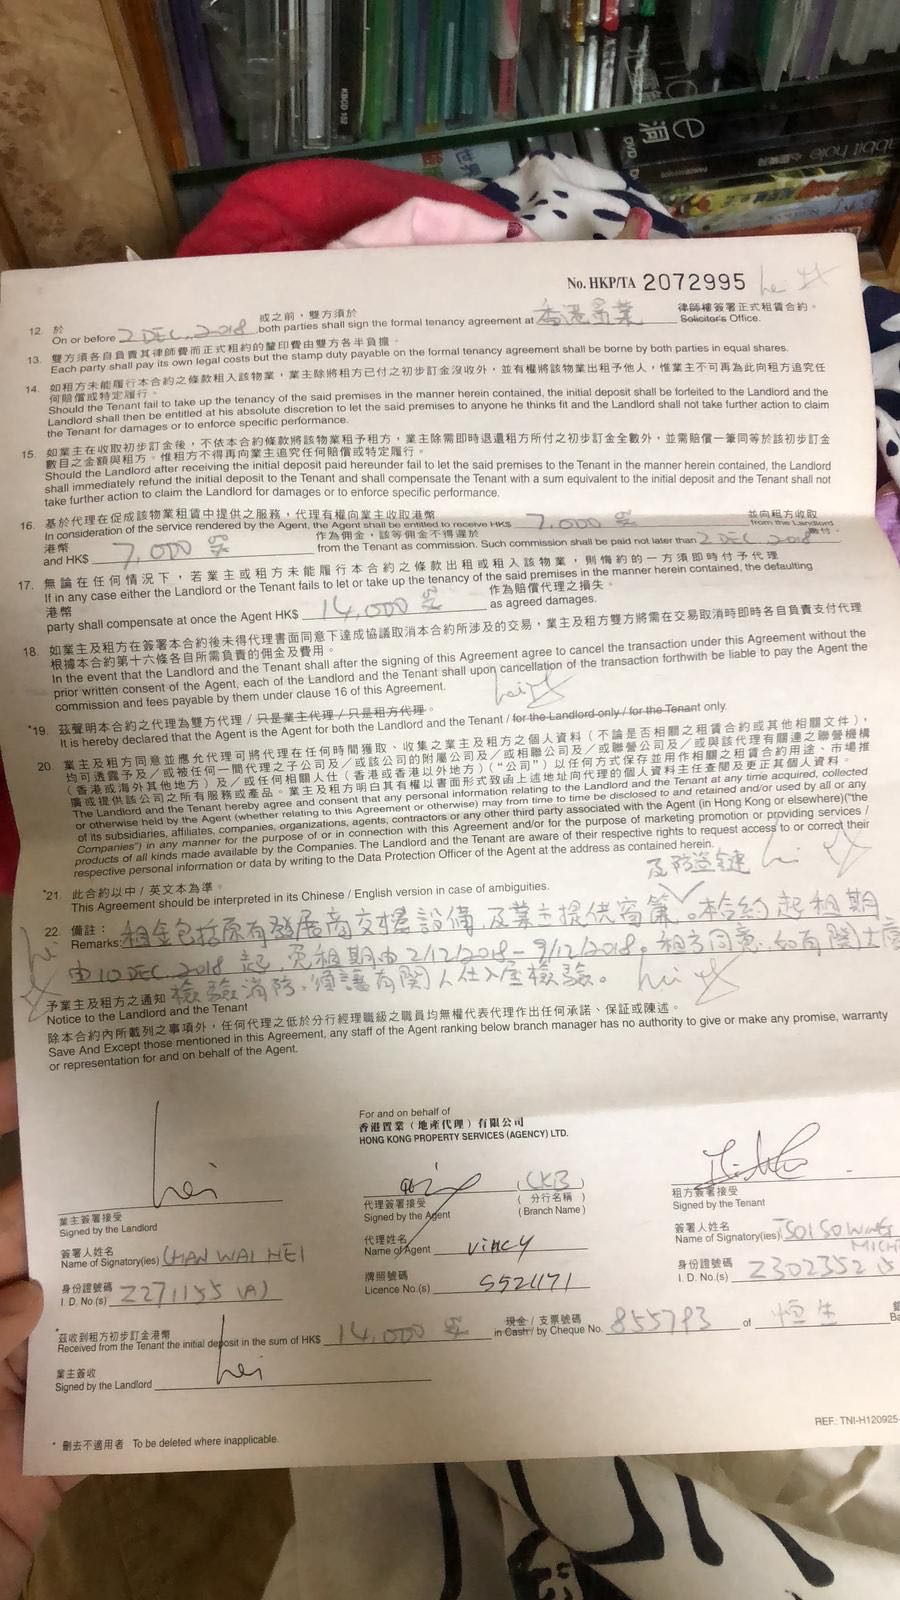 KBCD 152
世界
DVD
rabbit hole
No. HKP/TA 2072995 hei
12. 於 或之前，雙方須於 律師樓簽署正式租賃合約。
On or before 2 DEC, 2018 both parties shall sign the formal tenancy agreement at 香港置業 Solicitor's Office.
13. 雙方須各自負責其律師費而正式租約的釐印費由雙方各半負擔。
Each party shall pay its own legal costs but the stamp duty payable on the formal tenancy agreement shall be borne by both parties in equal shares.
14. 如租方未能履行本合約之條款租入該物業，業主除將租方已付之初步訂金沒收外，並有權將該物業出租予他人，惟業主不可再為此向租方追究任
何賠償或特定履行。
Should the Tenant fail to take up the tenancy of the said premises in the manner herein contained, the initial deposit shall be forfeited to the Landlord and the
Landlord shall then be entitled at his absolute discretion to let the said premises to anyone he thinks fit and the Landlord shall not take further action to claim
the Tenant for Damages or to enforce specific performance.
15. 如業主在收取初步訂金後，不依本合約條款將該物業租予租方，業主除需即時退還租方所付之初步訂金全數外，並需賠償一筆同等於該初步訂金
數目之金額與租方。惟租方不得再向業主追究任何賠償或特定履行。
Should the Landlord after receiving the initial deposit paid hereunder fail to let the said premises to the Tenant in the manner herein contained, the Landlord
shall immediately refund the initial deposit to the Tenant and shall compensate the Tenant with a sum equivalent to the initial deposit and the Tenant shall not
take further action to claim the Landlord for damages or to enforce specific performance.
16. 基於代理在促成該物業租賃中提供之服務，代理有權向業主收取港幣 並向租方收取
In consideration of the service rendered by the Agent, the Agent shall be entitled to receive HK$ 7,000 from the Landlord
港幣 作為佣金，該等佣金不得遲於 繳付。
and HK$ 7,000 from the Tenant as commission. Such commission shall be paid not later than 2 DEC, 2018
17. 無論在任何情況下，若業主或租方未能履行本合約之條款出租或租入該物業，則悔約的一方須即時付予代理
If in any case either the Landlord or the Tenant fails to let or take up the tenancy of the said premises in the manner herein contained, the defaulting
港幣 作為賠償代理之損失。
party shall compensate at once the Agent HK$ 14,000 as agreed damages.
18. 如業主及租方在簽署本合約後未得代理書面同意下達成協議取消本合約所涉及的交易，業主及租方雙方將需在交易取消時即時各自負責支付代理
根據本合約第十六條各自所需負責的佣金及費用。
In the event that the Landlord and the Tenant shall after the signing of this Agreement agree to cancel the transaction under this Agreement without the
prior written consent of the Agent, each of the Landlord and the Tenant shall upon cancellation of the transaction forthwith be liable to pay the Agent the
commission and fees payable by them under clause 16 of this Agreement.
hei
*19. 茲聲明本合約之代理為雙方代理 / 只是業主代理 / 只是租方代理。
It is hereby declared that the Agent is the Agent for both the Landlord and the Tenant / for the Landlord only / for the Tenant only.
20. 業主及租方同意並應允代理可將代理在任何時間獲取、收集之業主及租方之個人資料（不論是否相關之租賃合約或其他相關文件），
均可透露予及／或被任何一間代理之子公司及／或該公司的附屬公司及／或相聯公司及／或聯營公司及／或與該代理有關連之聯營機構
（香港或海外其他地方）及／或任何相關人仕（香港或香港以外地方）（“公司”）以任何方式保存並用作相關之租賃合約用途、市場推
廣或提供該公司之所有服務或產品。業主及租方明白其有權以書面形式致函上述地址向代理的個人資料主任查閱及更正其個人資料。
The Landlord and the Tenant hereby agree and consent that any personal information relating to the Landlord and the Tenant at any time acquired, collected
or otherwise held by the Agent (whether relating to this Agreement or otherwise) may from time to time be disclosed to and retained and/or used by all or any
of its subsidiaries, affiliates, companies, organizations, agents, contractors or any other third party associated with the Agent (in Hong Kong or elsewhere)("the
Companies") in any manner for the purpose of or in connection with this Agreement and/or for the purpose of marketing promotion or providing services /
products of all kinds made available by the Companies. The Landlord and the Tenant are aware of their respective rights to request access to or correct their
respective personal information or data by writing to the Data Protection Officer of the Agent at the address as contained herein.
及防盜鏈 hei
*21. 此合約以中 / 英文本為準。
This Agreement should be interpreted in its Chinese / English version in case of ambiguities.
22. 備註：
Remarks: 租金包括原有發展商交樓設備，及業主提供窗簾。本合約起租期
由10 DEC, 2018 起，免租期由2/12/2018-9/12/2018。租方同意，如有關上
檢驗消防，須讓有關人仕入屋檢驗。 hei
hei
予業主及租方之通知
Notice to the Landlord and the Tenant
除本合約內所載列之事項外，任何代理之低於分行經理職級之職員均無權代表代理作出任何承諾、保証或陳述。
Save And Except those mentioned in this Agreement, any staff of the Agent ranking below branch manager has no authority to give or make any promise, warranty
or representation for and on behalf of the Agent.
For and on behalf of
香港置業（地產代理）有限公司
HONG KONG PROPERTY SERVICES (AGENCY) LTD.
hei (CKB)
業主簽署接受 代理簽署接受 （分行名稱） 租方簽署接受
Signed by the Landlord Signed by the Agent (Branch Name) Signed by the Tenant
簽署人姓名 代理姓名 簽署人姓名
Name of Signatory(ies) CHAN WAI HEI Name of Agent Vincy Name of Signatory(ies)
身份證號碼 牌照號碼 身份證號碼
I. D. No.(s) Z271155 (A) Licence No.(s) S521171 I. D. No.(s) Z302352
*茲收到租方初步訂金港幣 現金 / 支票號碼
Received from the Tenant the initial deposit in the sum of HK$ 14,000 in Cash / by Cheque No. 855793 of 恒生
業主簽收
Signed by the Landlord hei
REF.: TNI-H120925-
* 刪去不適用者 To be deleted where inapplicable.